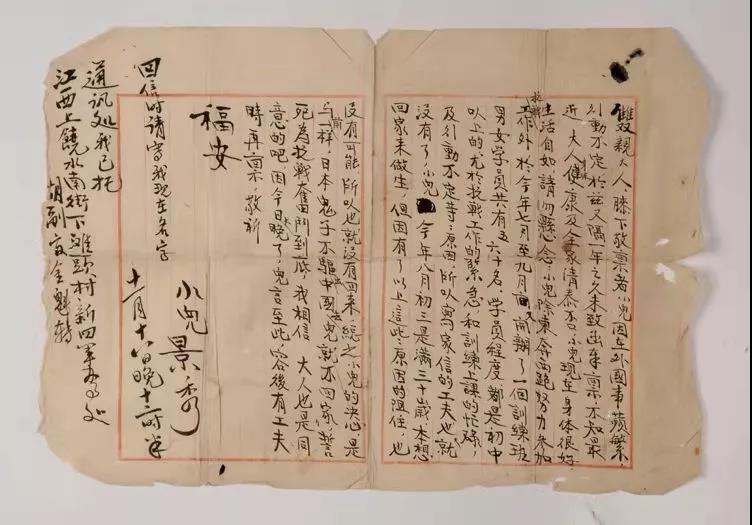 双亲大人膝下敬禀者小儿因在外国事蘋繁,
行動不定於兹又隔一年之久未致出车禀,不知最
近 大人健康及全家清泰否,小儿现在身体很好,
生活自如,請勿縣念,小兒除東奔西跑努力参加
抗戰
工作外於今年七月至九月 開辦了一個訓練班
男女学员共有五六十名,学员程度都是初中
以上的尤於抗戰工作的緊急,和訓練上課的忙碌,
及行動不定等原因所以寫家信的工夫也就
沒有了,小兒 今年八月初三是满三十歲本想
回家来做生,但因有了以上這些原因的阻住,也
沒有可能,所以也就沒有回来,總之小兒的决心是
与前一样,日本鬼子不驅出中國兒就不回家,誓
死為抗戰奮鬥到底,我相信 大人也是同
意的吧,因今日晚了,兒言至此,容後有工夫
時再禀,敬祈
福安
小兒景秀
十一月十六日晚十二時半
回信时請写我现在名字
通讯处我已托
江西上饶水南街下灘頭村新四軍办事处
胡副官金魁转